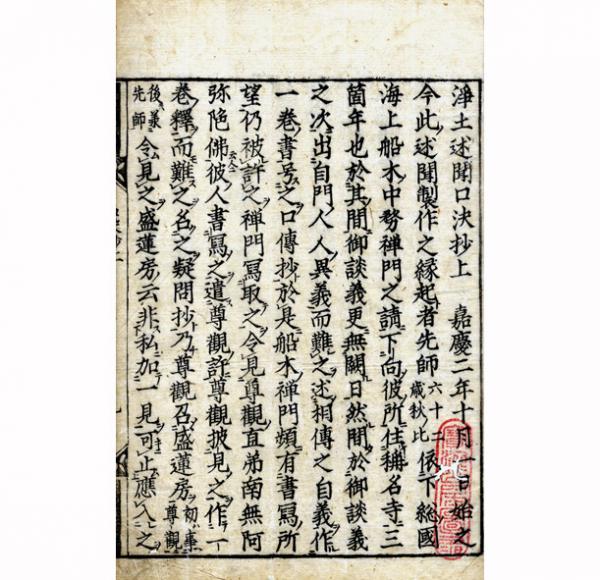 淨土述聞口決抄上　嘉慶二年十月一日始之
今此述聞製作之縁起者先師六十二歳秋比依下総國
海上船木中務禅門之請下向彼所住稱名寺三
箇年也於其間御談義更無闕日然間於御談義
之次出自門人人異義而難之述相傳之自義作
一巻書号之口傳抄於是船木禅門頻有書冩所
望仍被許之禅門冩取之令見尊觀直弟南無阿
弥陁佛彼人書冩之遣尊觀許尊觀披見之作一
巻釋而難之名之疑問抄乃尊觀召盛蓮房初事尊觀
後義先師令見之盛蓮房云非私加一見可止應入之